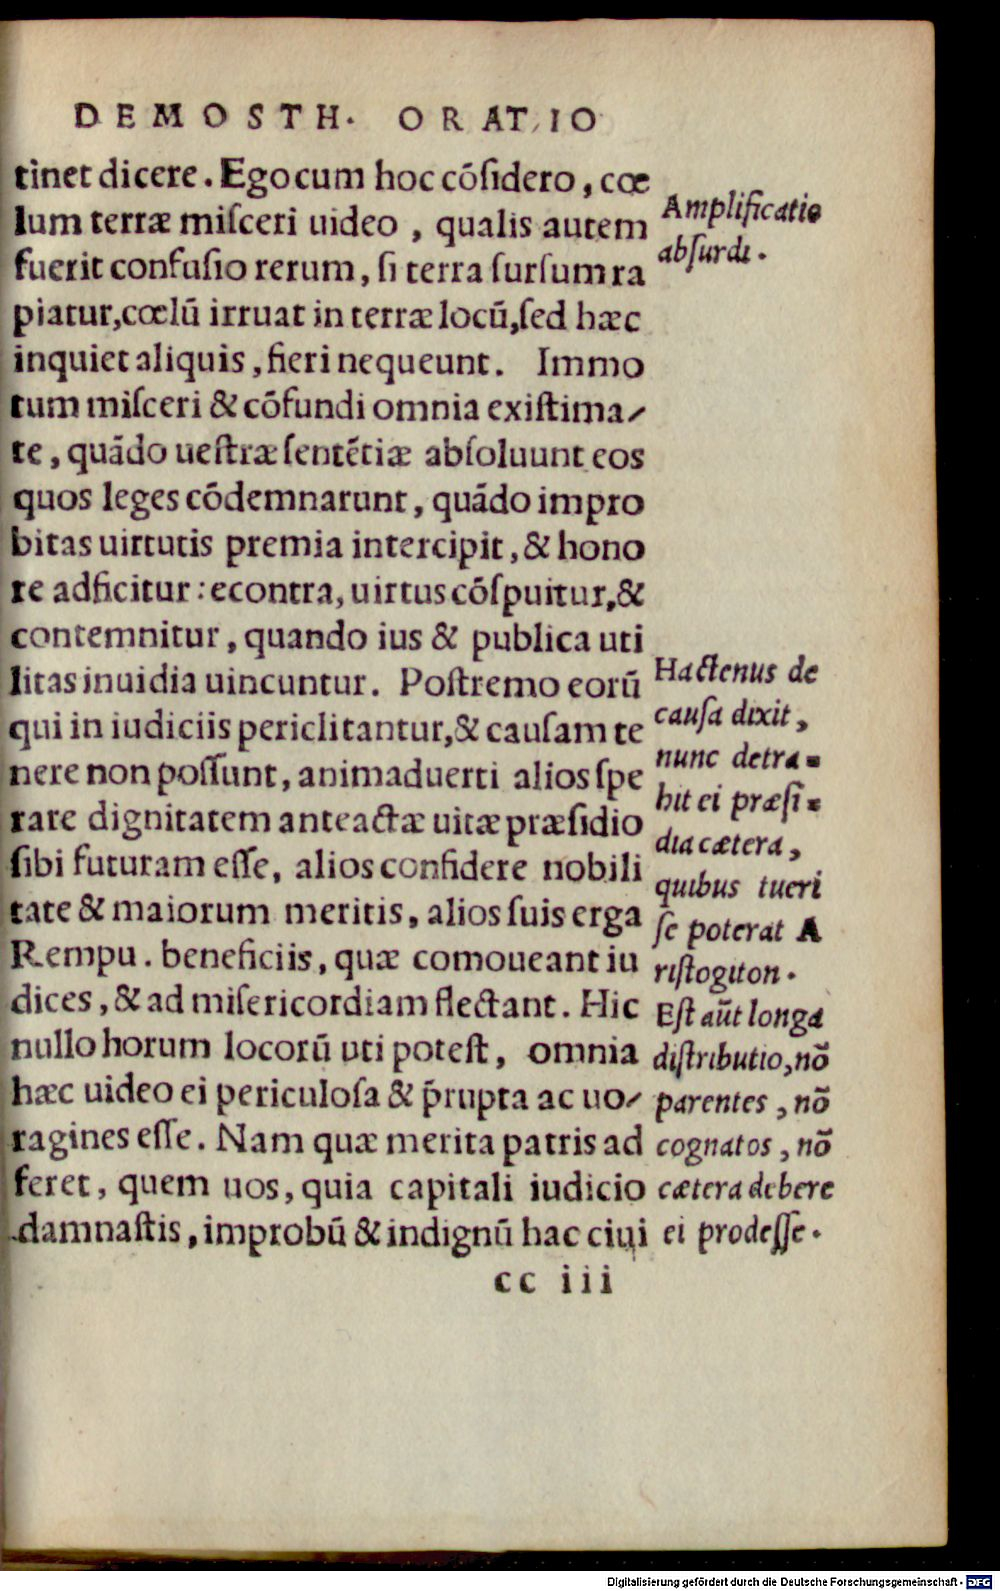 DEMOSTH. ORATIO
tinet dicere. Ego cum hoc cōsidero, cœ
lum terræ misceri uideo, qualis autem
fuerit confusio rerum, si terra sursum ra
piatur, cœlū irruat in terræ locū, sed hæc
inquiet aliquis, fieri nequeunt. Immo
tum misceri & cōfundi omnia existima-
te, quādo uestræ sentētiæ absoluunt eos
quos leges cōdemnarunt, quādo impro
bitas uirtutis premia intercipit, & hono
re adficitur: econtra, uirtus cōspuitur, &
contemnitur, quando ius & publica uti
litas inuidia uincuntur. Postremo eorū
qui in iudiciis periclitantur, & causam te
nere non possunt, animaduerti alios spe
rare dignitatem anteactæ uitæ præsidio
sibi futuram esse, alios confidere nobili
tate & maiorum meritis, alios suis erga
Rempu. beneficiis, quæ comoueant iu
dices, & ad misericordiam flectant. Hic
nullo horum locorū uti potest, omnia
hæc uideo ei periculosa & p̄rupta ac uo-
ragines esse. Nam quæ merita patris ad
feret, quem uos, quia capitali iudicio
damnastis, improbū & indignū hac ciui
cc iii
Amplificatio
absurdi.
Hactenus de
causa dixit,
nunc detra=
hit ei præsi=
dia cætera,
quibus tueri
se poterat A
ristogiton.
Est aūt longa
distributio, nō
parentes, nō
cognatos, nō
cætera debere
ei prodesse.
Digitalisierung gefördert durch die Deutsche Forschungsgemeinschaft - DFG